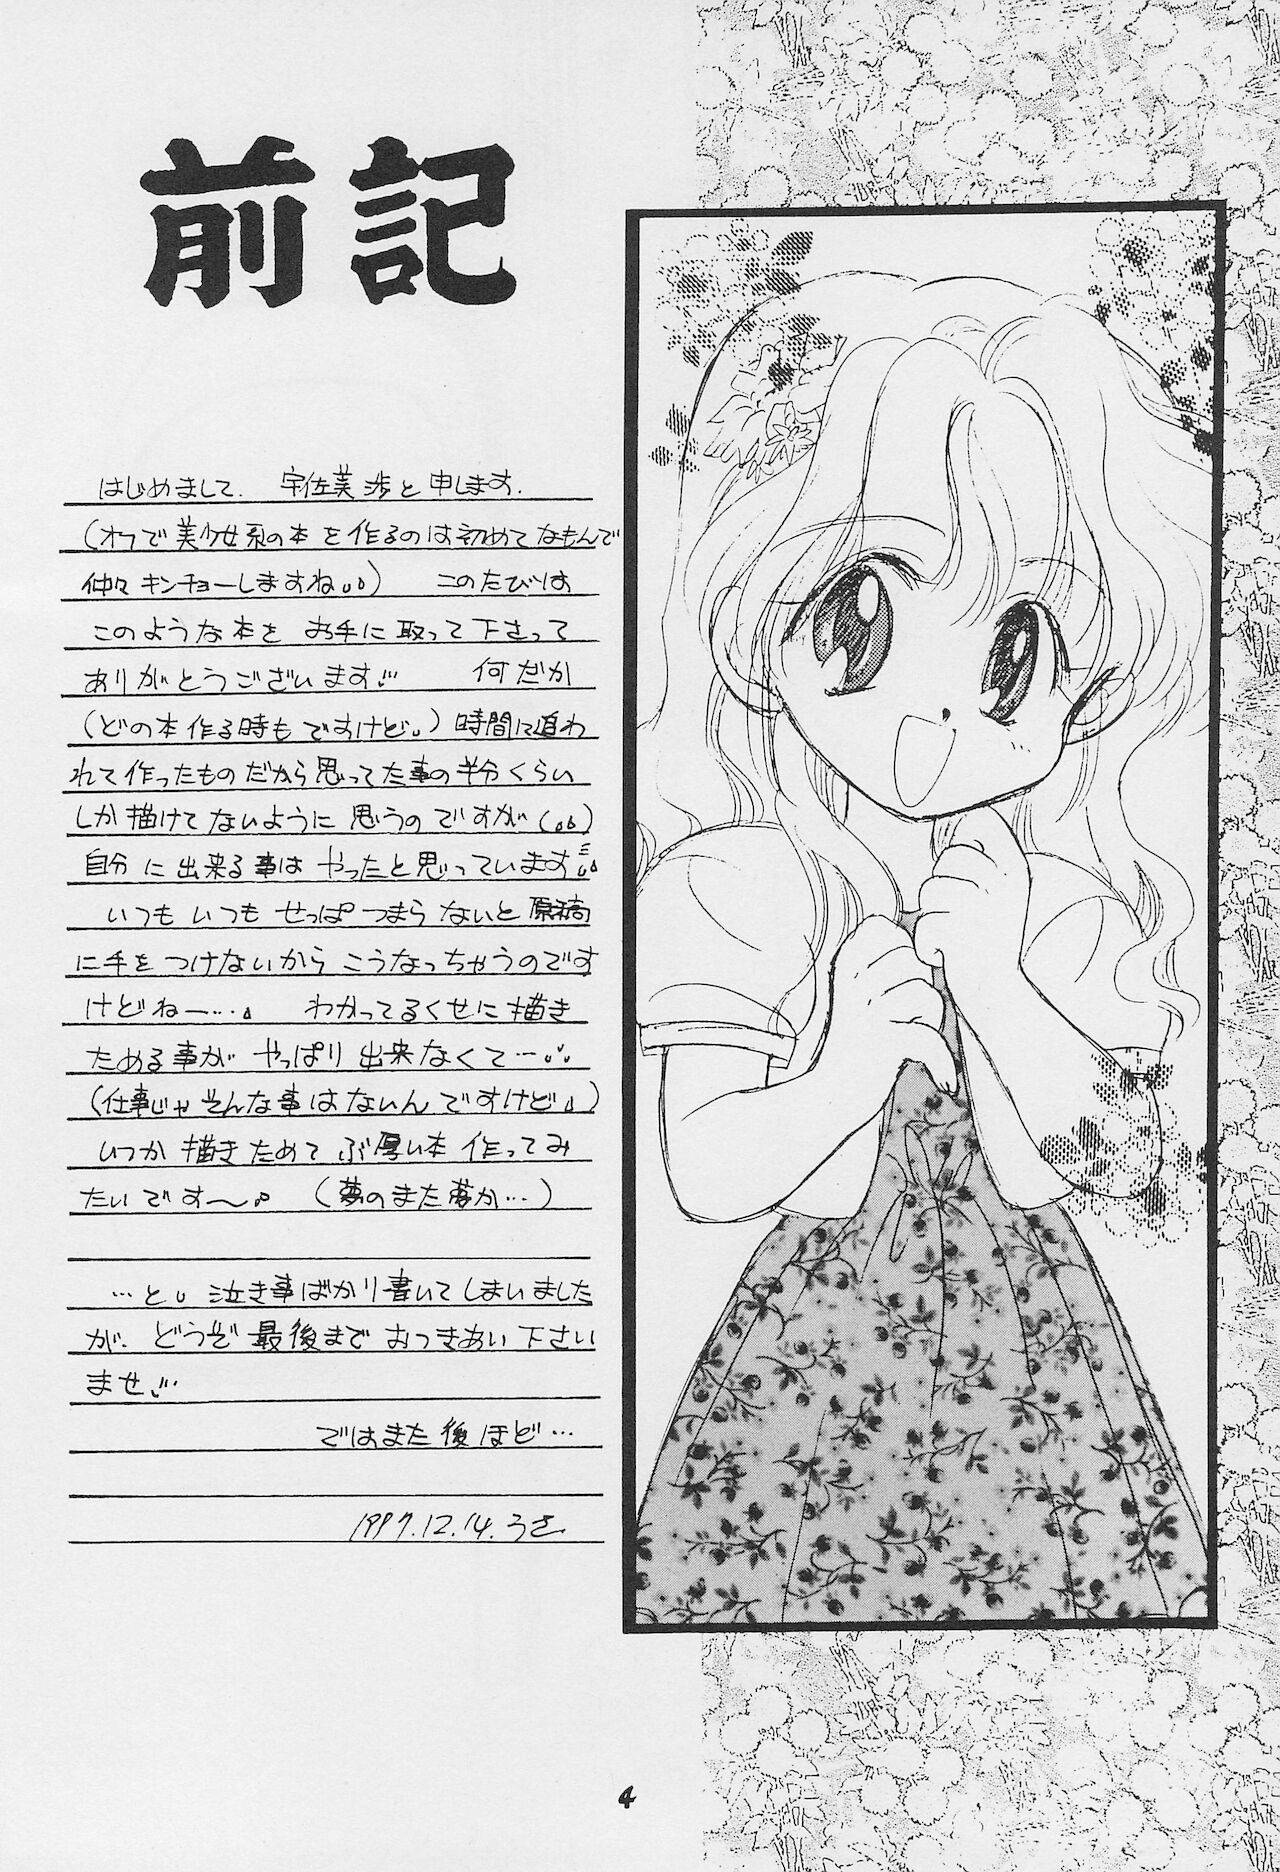 前記
はじめまして. 宇佐美渉と申します.
(オフで美少女系の本を作るのは初めてなもんで
仲々キンチョーしますね。。) このたびは
このような本をお手に取って下さって
ありがとうございます!! 何だか
(どの本作る時もですけど。) 時間に追わ
れて作ったものだから思ってた事の半分くらい
しか描けてないように思うのですが(。。)
自分に出来る事はやったと思っています。。
いつもいつもせっぱつまらないと原稿
に手をつけないからこうなっちゃうのです
けどねー…。 わかってるくせに描き
ためる事がやっぱり出来なくて…。。
(仕事じゃそんな事はないんですけど。)
いつか描きためてぶ厚い本作ってみ
たいです〜♪ (夢のまた夢か…)
…と。泣き事ばかり書いてしまいました
が. どうぞ最後までおつきあい下さい
ませ!!
ではまた後ほど…
1997.12.14.うさ
4